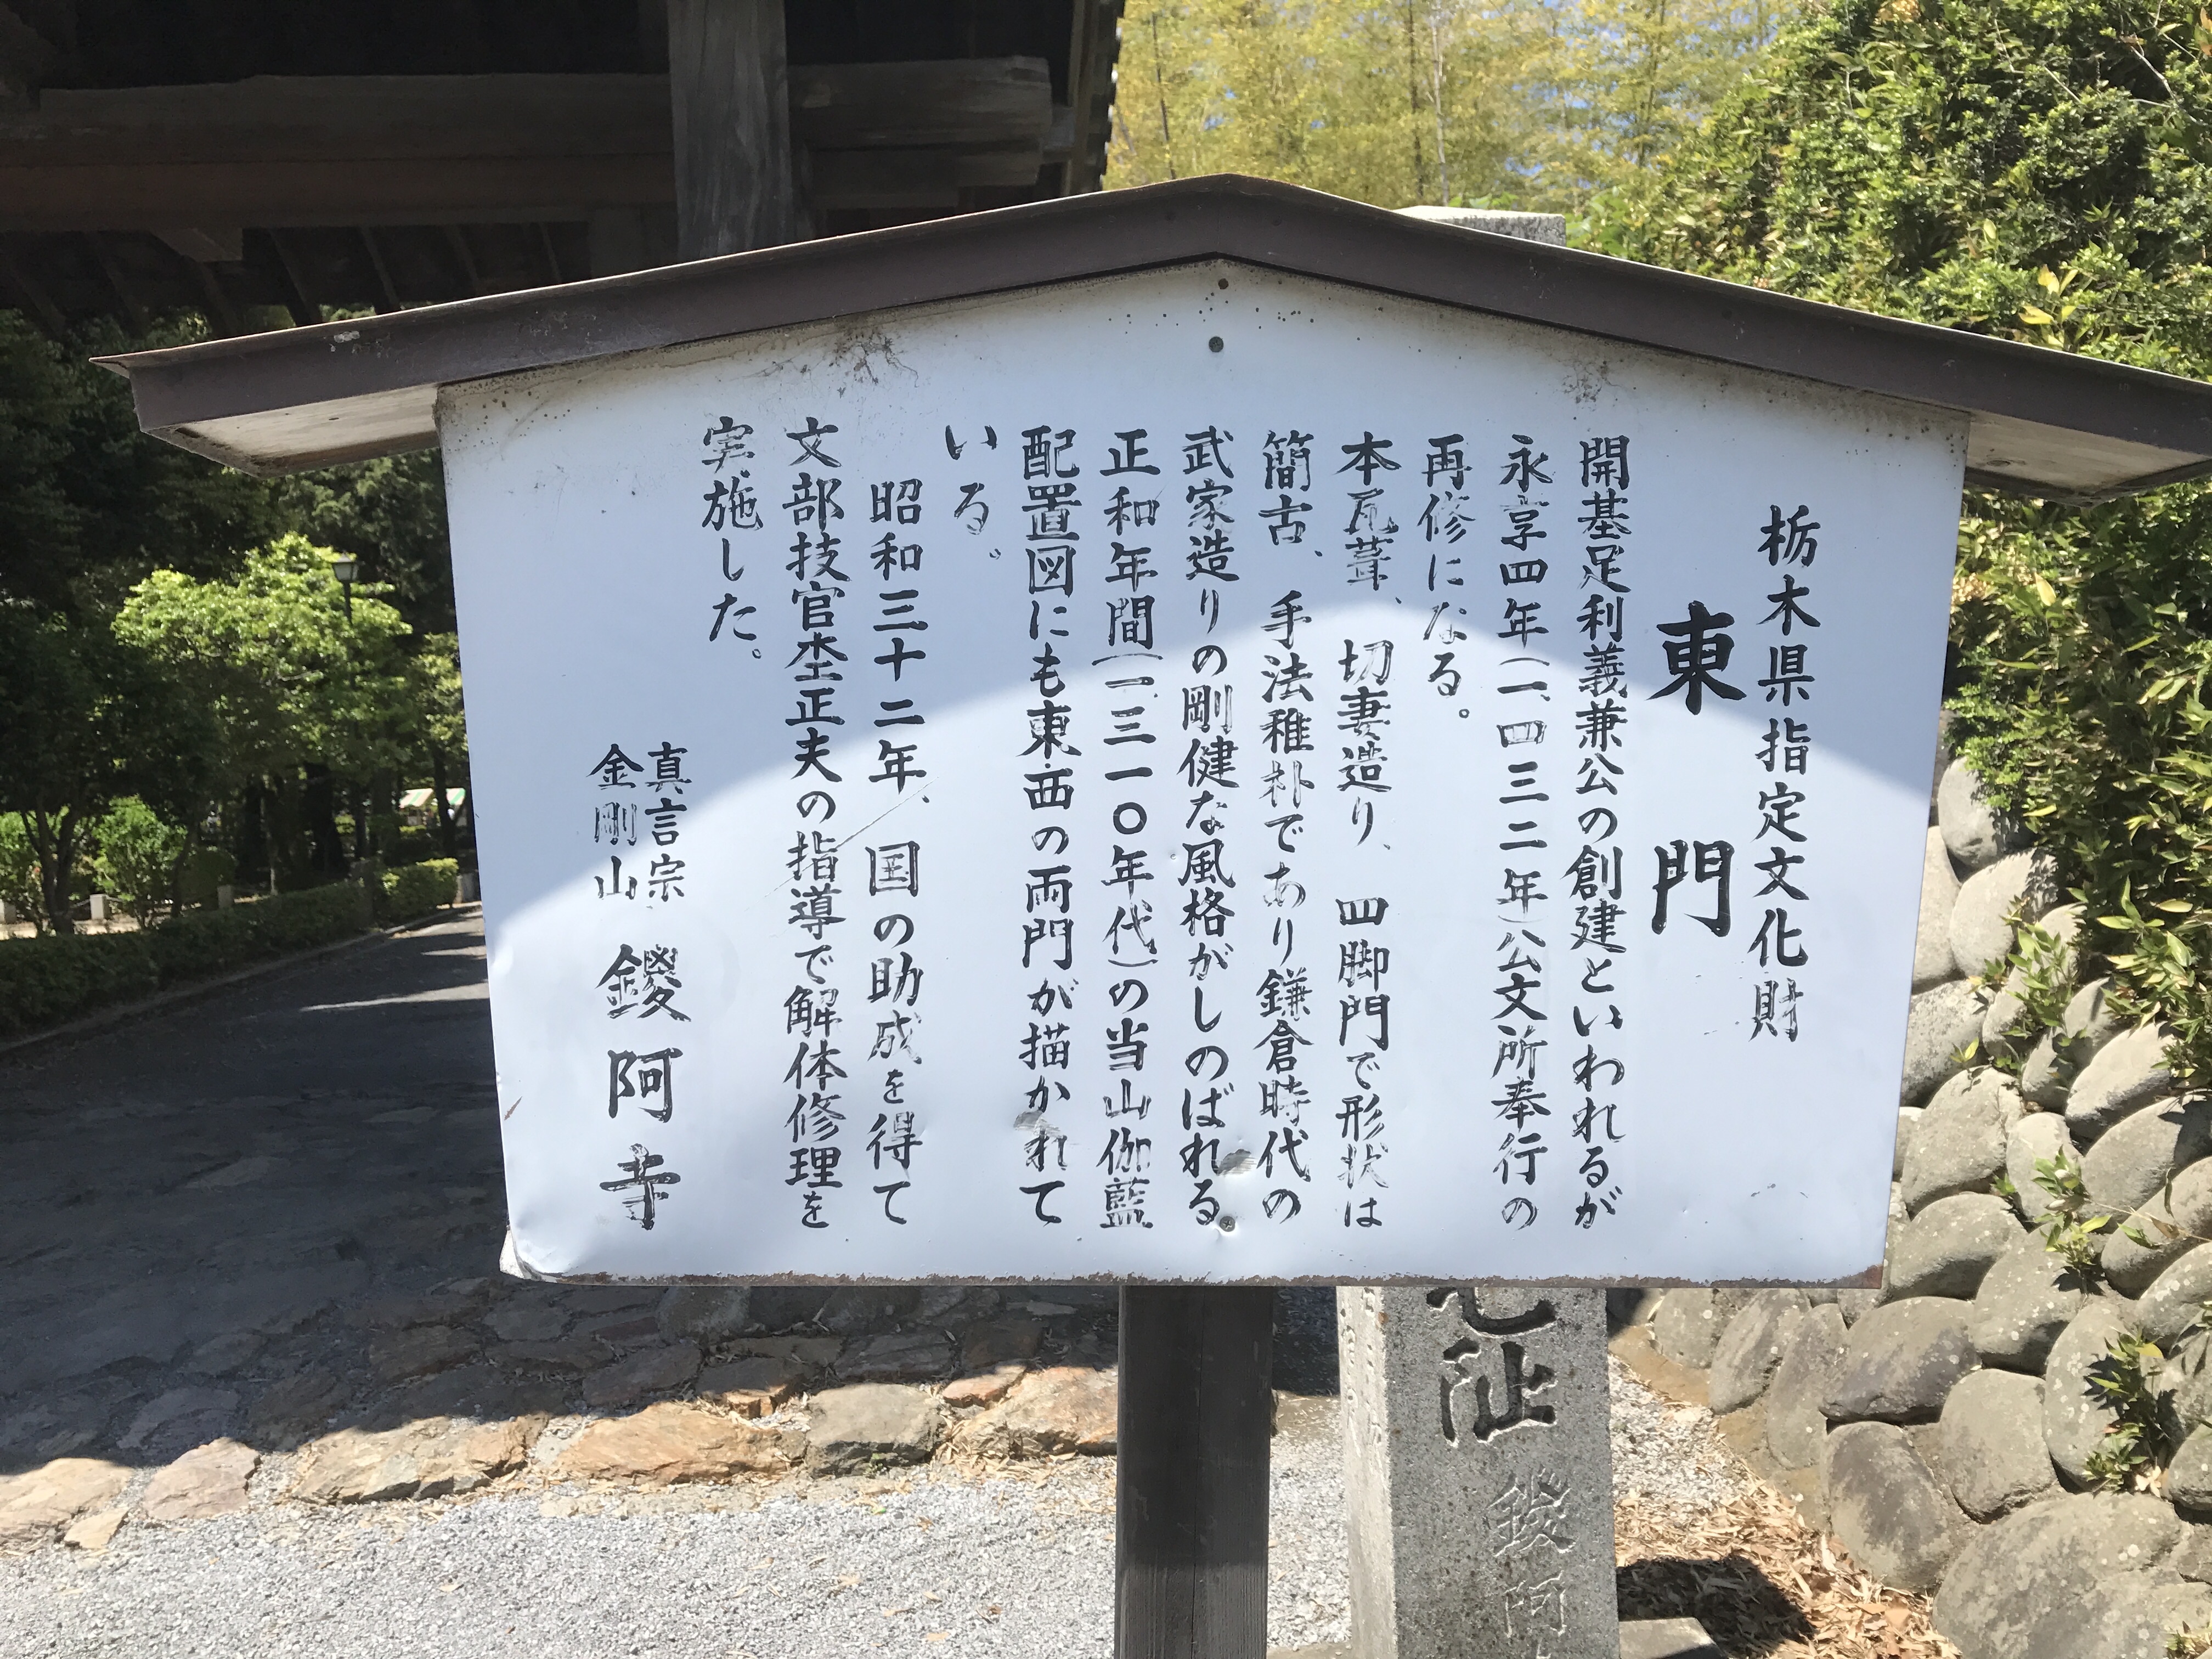 栃木県指定文化財
東門
開基足利義兼公の創建といわれるが
永享四年(一、四三二年)公文所奉行の
再修になる。
本瓦葺、切妻造り、四脚門で形状は
簡古、手法稚朴であり鎌倉時代の
武家造りの剛健な風格がしのばれる
正和年間(一、三一〇年代)の当山伽藍
配置図にも東西の両門が描かれて
いる。
昭和三十二年、国の助成を得て
文部技官杢正夫の指導で解体修理を
実施した。
真言宗
金剛山
鑁阿寺
址
鑁阿